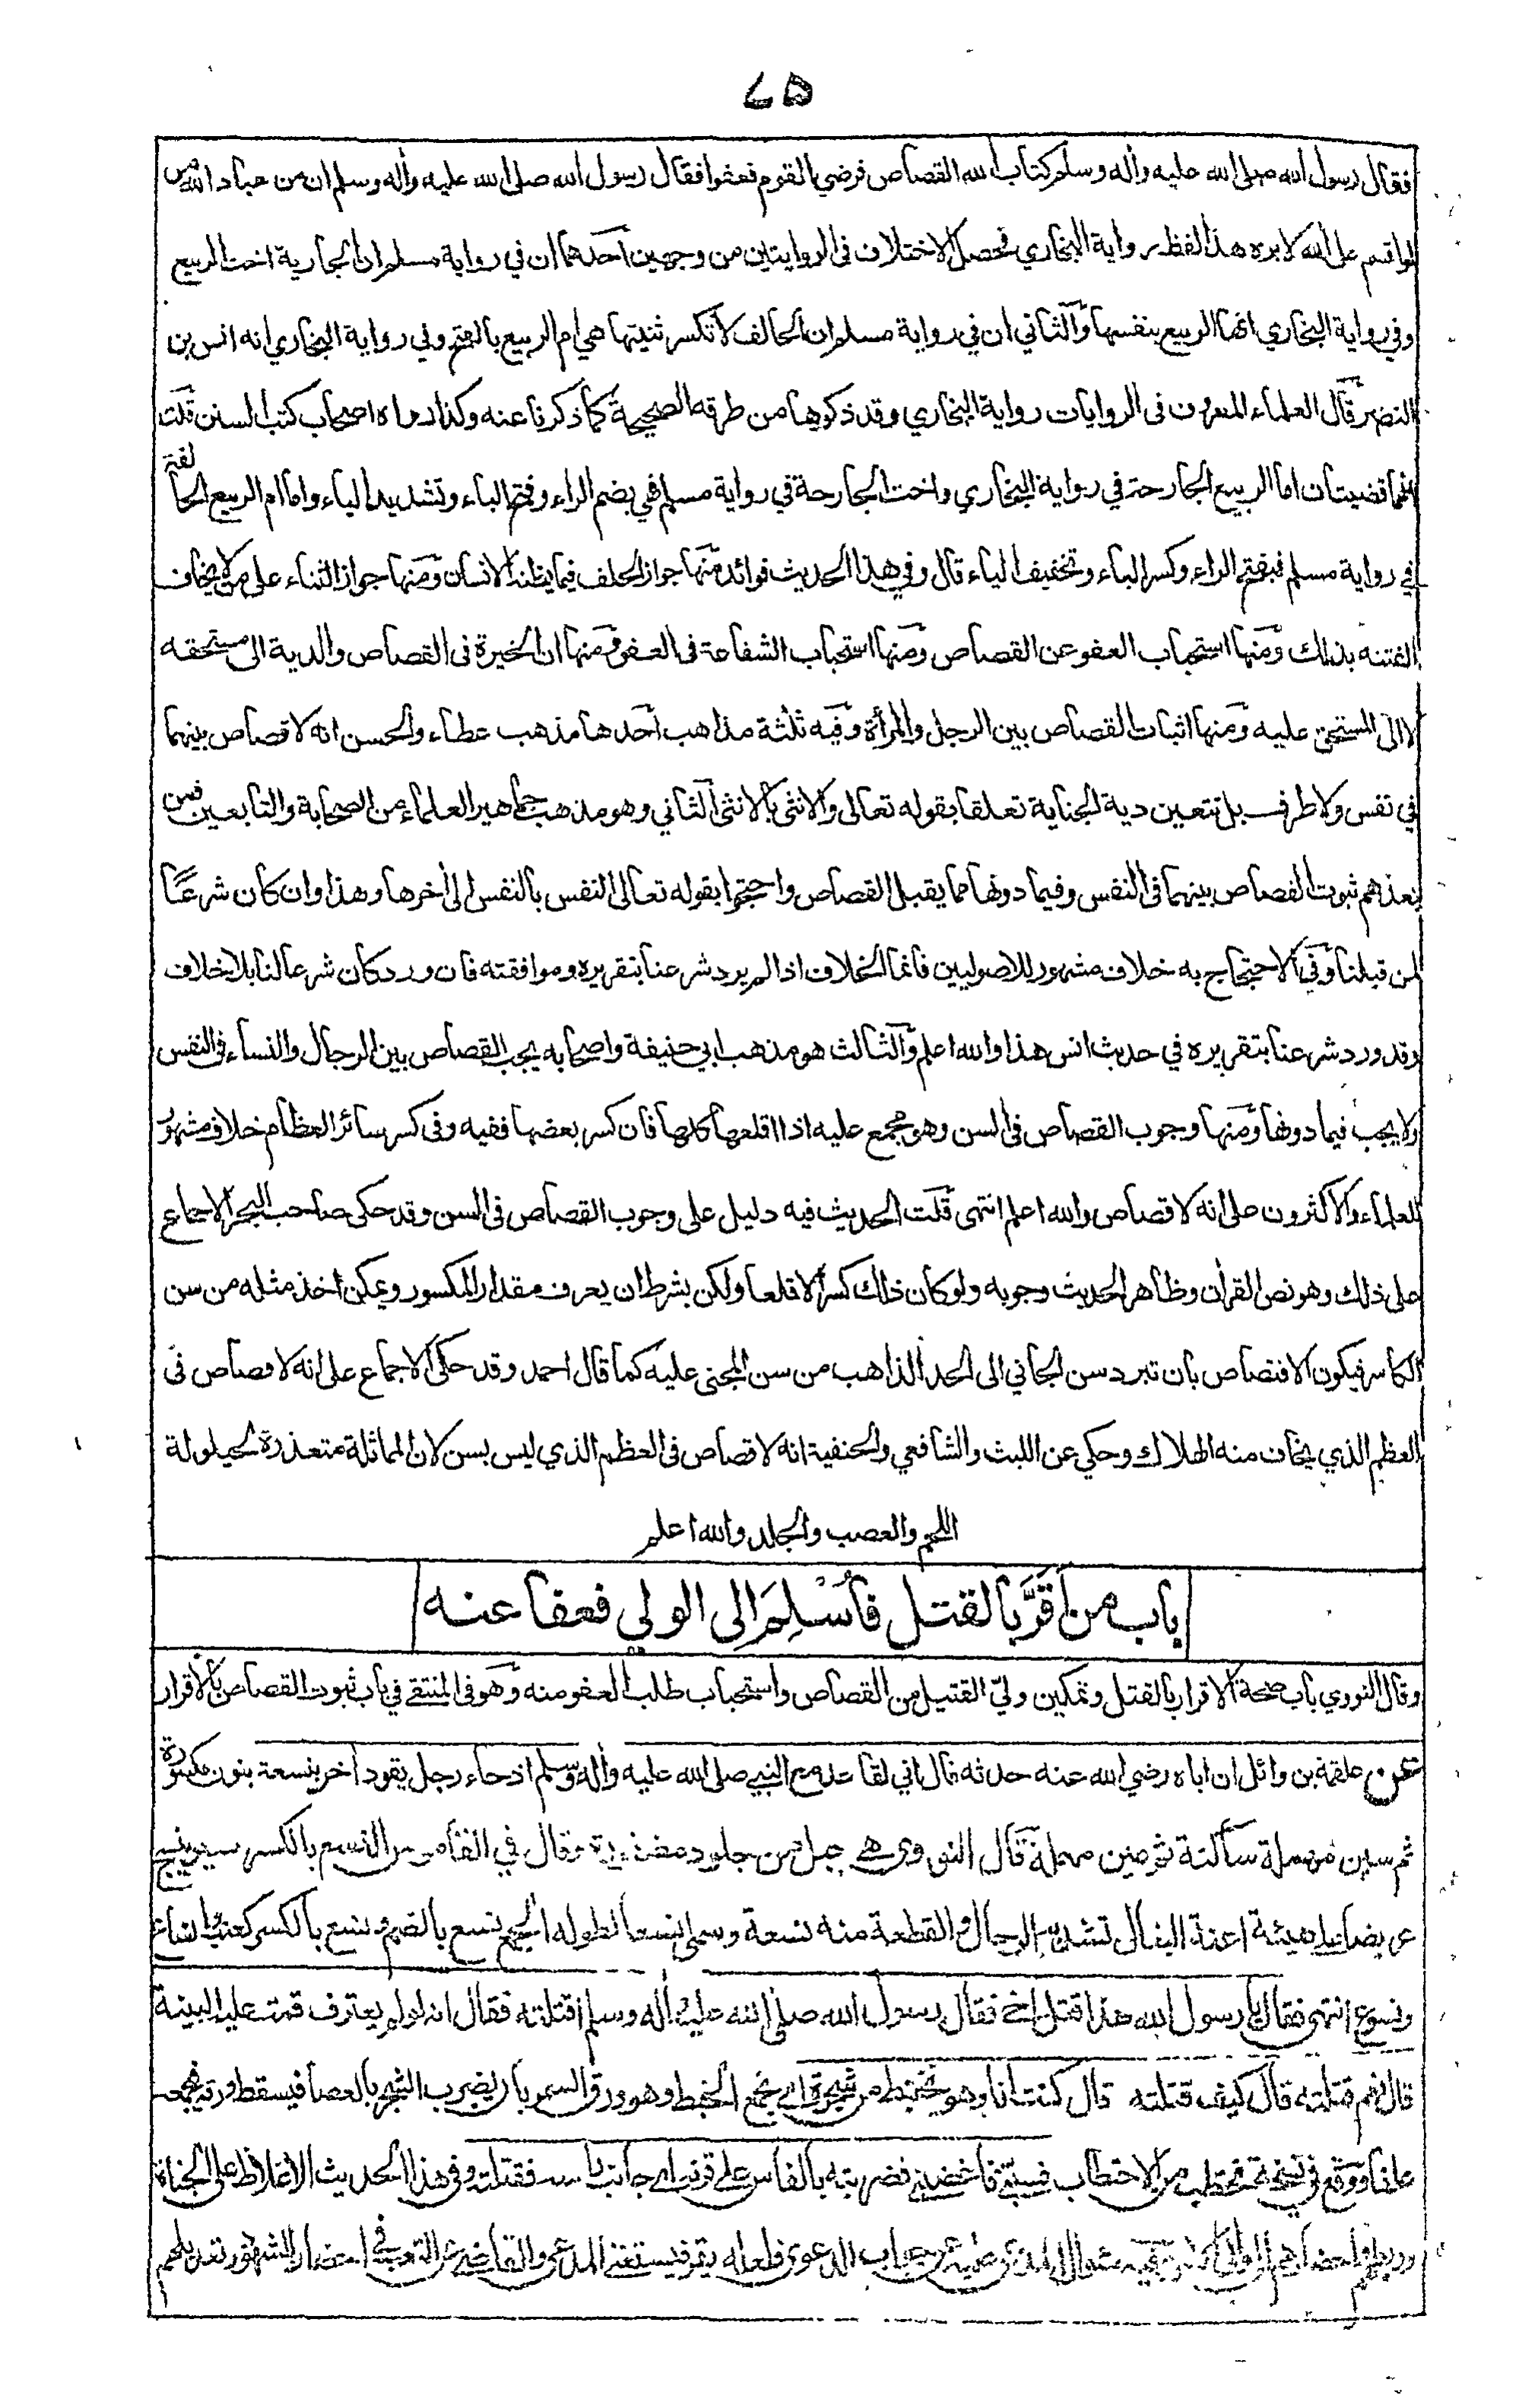 ٧٥
فقال رسول الله صلى الله عليه وأله وسلم كتاب الله القصاص فرضي القوم فعفوا فقال رسول الله صلى الله عليه وأله وسلم ان من عباد الله من
لو اقسم على الله لابره هذا لفظ رواية البخاري فحصل الاختلاف فى الروايتين من وجهين أحدهما ان في رواية مسلم ان الجارية اخت الربيع
وفي رواية البخاري انها الربيع بنفسها والثاني ان في رواية مسلم ان الحالف لا تكسر ثنيتها هي ام الربيع بالفتح وفي رواية البخاري انه انس بن
النضر قال العلماء المعروف فى الروايات رواية البخاري وقد ذكرها من طرقه الصحيحة كما ذكرنا عنه وكذا رواه اصحاب كتب السنن قلت
انهما قضيتان اما الربيع الجارحة في رواية البخاري واخت الجارحة في رواية مسلم فهي بضم الراء وفتح الباء وتشديد الياء واما ام الربيع الحالفة
في رواية مسلم فبفتح الراء وكسر الباء وتخفيف الياء قال وفي هذا الحديث فوائد منها جواز الحلف فيما يظنه الانسان ومنها جواز الثناء على من لا يخاف
الفتنه بذلك ومنها استحباب العفو عن القصاص ومنها استحباب الشفاعة فى العفو ومنها ان الخيرة فى القصاص والدية الى مستحقه
لا الى المستحق عليه ومنها اثبات القصاص بين الرجل والمرأة وفيه ثلثة مذاهب أحدها مذهب عطاء والحسن انه لا قصاص بينهما
في نفس ولا طرف بل تتعين دية الجناية تعلقا بقوله تعالى والانثى بالانثى الثاني وهو مذهب جماهير العلماء من الصحابة والتابعين فمن
بعدهم ثبوت القصاص بينهما فى النفس وفيما دونها مما يقبل القصاص واحتجوا بقوله تعالى النفس بالنفس الى أخرها وهذا وان كان شرعًا
لمن قبلنا وفي الاحتجاج به خلاف مشهور للاصوليين فانما الخلاف اذا لم يرد شرعنا بتقريره وموافقته فان ورد كان شرعا لنا بلا خلاف
وقد ورد شرعنا بتقريره في حديث انس هذا والله اعلم والثالث هو مذهب ابي حنيفة واصحابه يجب القصاص بين الرجال والنساء فى النفس
ولا يجب فيما دونها ومنها وجوب القصاص فى السن وهو مجمع عليه اذا اقلعها كلها فان كسر بعضها ففيه وفى كسر سائر العظام خلاف مشهور
للعلماء والاكثرون على انه لا قصاص والله اعلم انتهى قلت الحديث فيه دليل على وجوب القصاص فى السن وقد حكى صاحب البحر الاجماع
على ذلك وهو نص القرأن وظاهر الحديث وجوبه ولو كان ذلك كسرا لا قلعا ولكن بشرط ان يعرف مقدار المكسور ويمكن اخذ مثله من سن
الكاسر فيكون الاقتصاص بان تبرد سن الجاني الى الحد الذاهب من سن المجنى عليه كما قال احمد وقد حكى الاجماع على انه لا قصاص فى
العظم الذي يخاف منه الهلاك وحكي عن الليث والشافعي والحنفية انه لا قصاص فى العظم الذي ليس بسن لان المماثلة متعذرة لحيلولة
اللحم والعصب والجلد والله اعلم
باب من أَقَرَّ بالقتل فأُسْلِمَ الى الولي فعفا عنه
وقال النووي باب صحة الاقرار بالقتل وتمكين ولي القتيل من القصاص واستحباب طلب العفو منه وهو فى المنتقى في باب ثبوت القصاص بالاقرار
عن علقمة بن وائل ان اباه رضي الله عنه حدثه قال اني لقاعد مع النبي صلى الله عليه وأله وسلم اذ جاء رجل يقود أخر بنسعة بنون مكسورة
ثم سين مهملة ساكنة ثم عين مهملة قال النووي هي حبل من جلود مضفورة وقال في القاموس النسع بالكسر سير ينسج
عريضا على هيئة اعنة البغال تشد به الرحال والقطعة منه نسعة وسمى نسعا لطوله الجمع نسع بالضم ونسع بالكسر كعنب وانساع
ونسوع انتهى فقال يا رسول الله هذا قتل اخي فقال رسول الله صلى الله عليه وأله وسلم اقتلته فقال انه لو لم يعترف قمت عليه البينة
قال نعم قتلته قال كيف قتلته قال كنت انا وهو نختبط من شجرة اي نجمع الخبط وهو ورق السمر بان يضرب الشجر بالعصا فيسقط ورقه فيجمعه
علفا ووقع في نسخة نحتطب من الاحتطاب فسبني فاغضبني فضربته بالفأس على قرنه اي جانب راسه فقتلته وفى هذا الحديث الاغلاظ على الجناة
وربطهم واحضارهم الى ولي الامر وفيه سؤال المدعى عليه عن جواب الدعوى فلعله يقر فيستغني المدعي والقاضي عن التعب في احضار الشهود